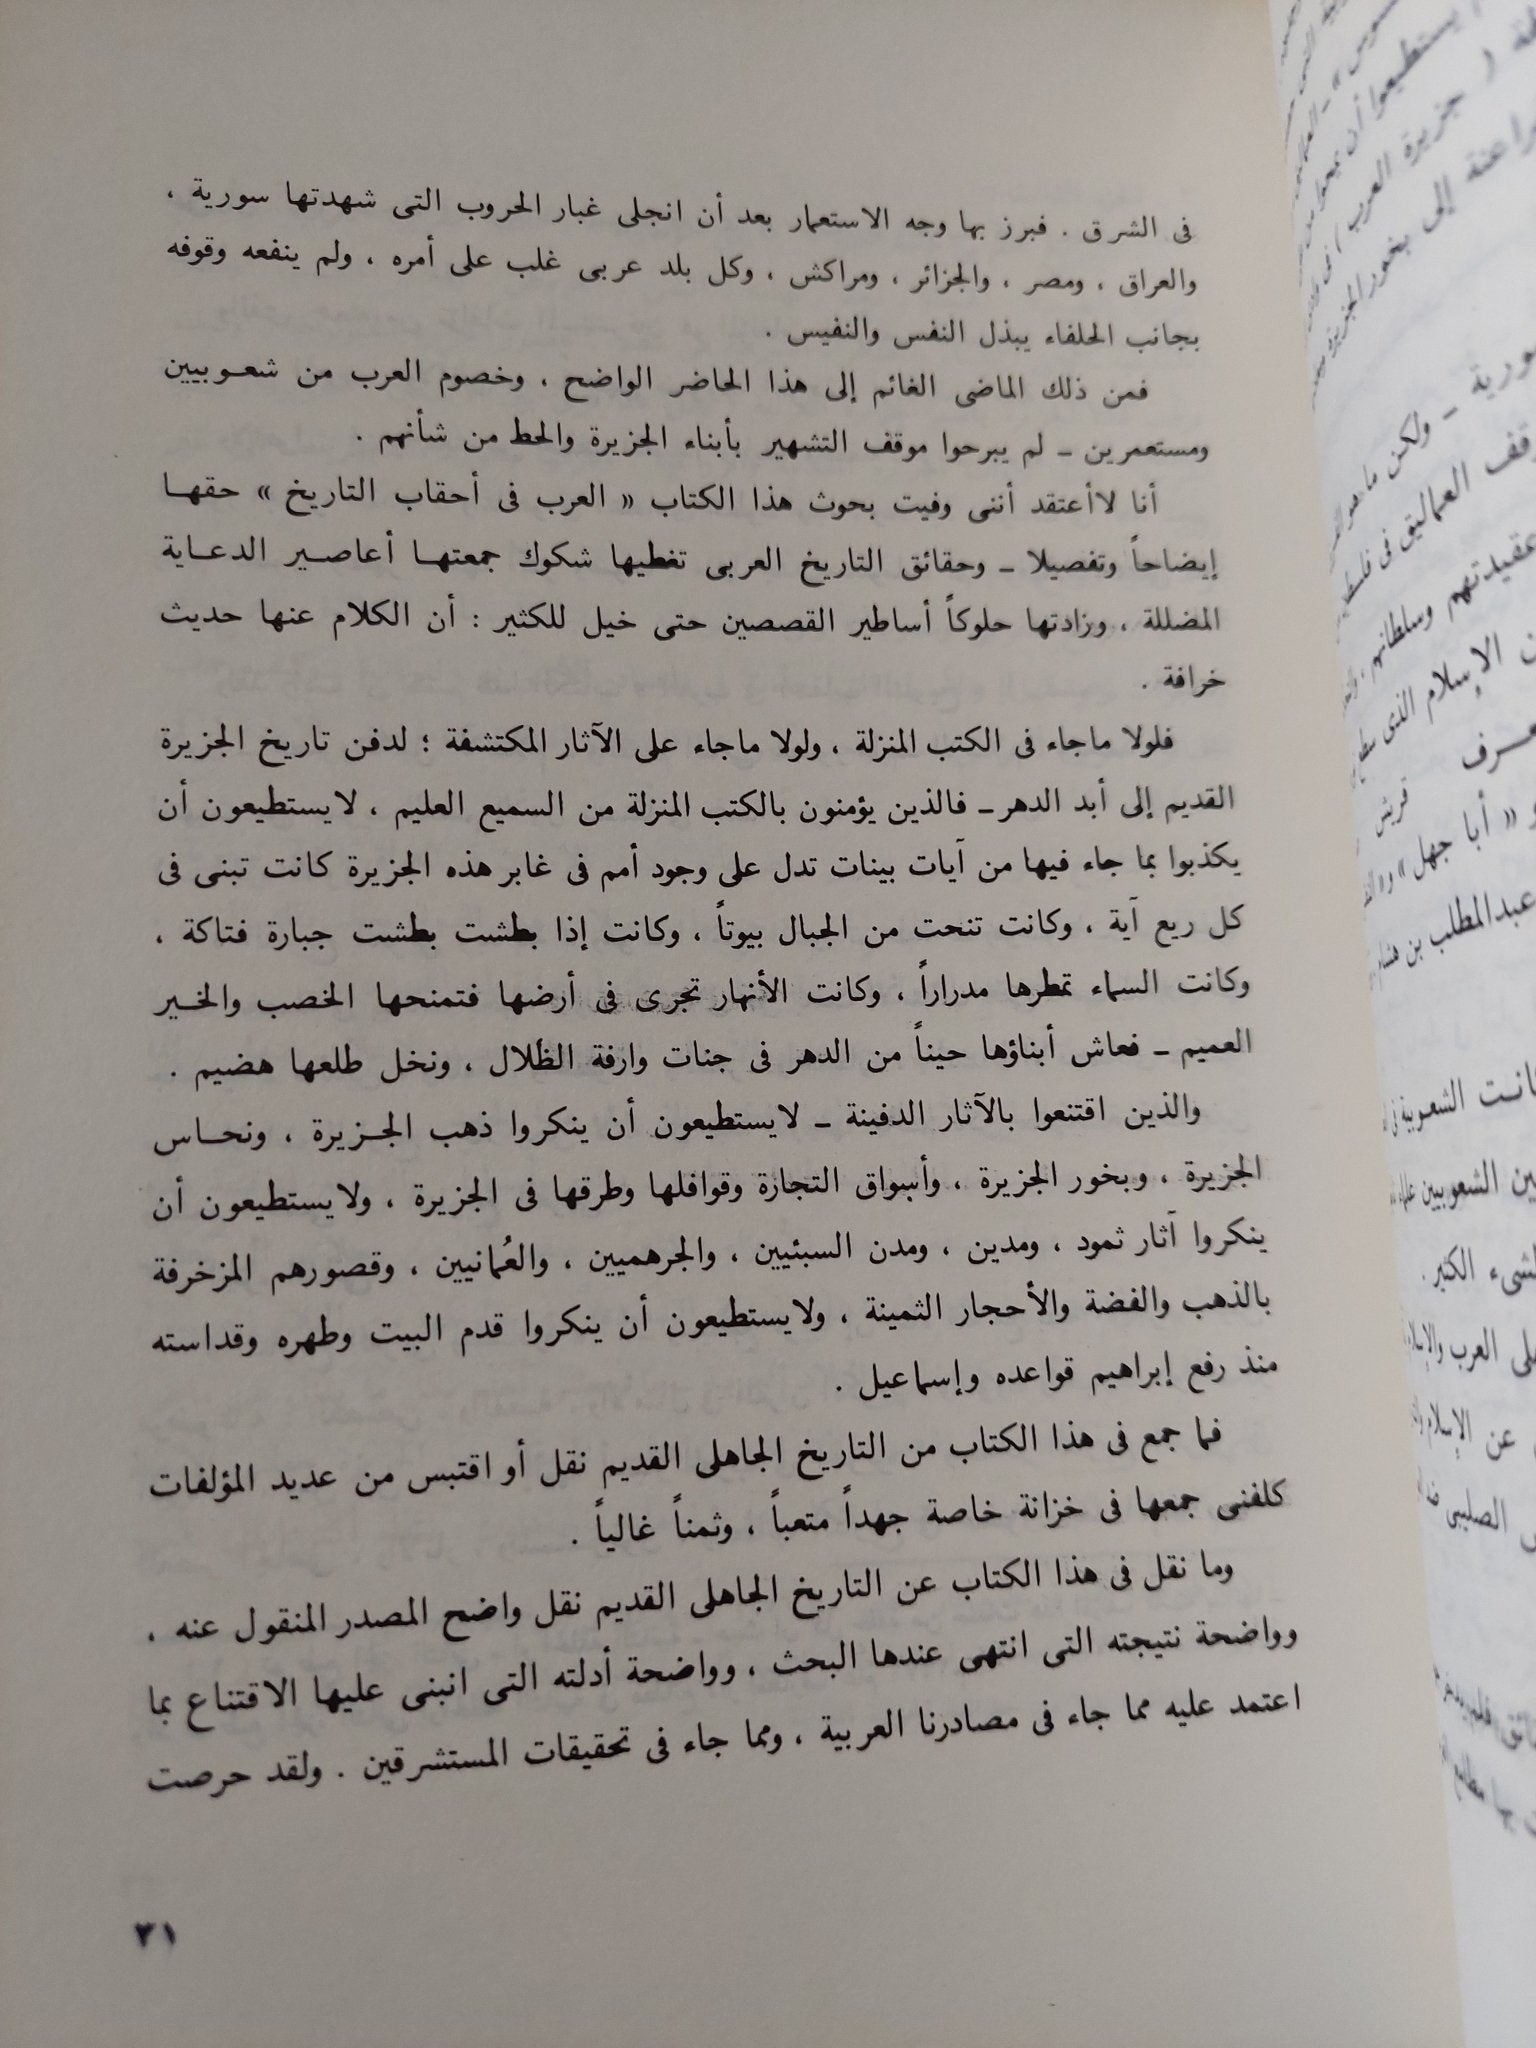 فى الشرق . فبرز بها وجه الاستعمار بعد أن انجلى غبار الحروب التى شهدتها سورية ،
والعراق ، ومصر ، والجزائر ، ومراكش ، وكل بلد عربى غلب على أمره ، ولم ينفعه وقوفه
بجانب الحلفاء يبذل النفس والنفيس .
فمن ذلك الماضى الغائم إلى هذا الحاضر الواضح ، وخصوم العرب من شعوبيين
ومستعمرين – لم يبرحوا موقف التشهير بأبناء الجزيرة والحط من شأنهم .
أنا لاأعتقد أننى وفيت بحوث هذا الكتاب « العرب فى أحقاب التاريخ » حقها
إيضاحاً وتفصيلا – وحقائق التاريخ العربى تغطيها شكوك جمعتها أعاصير الدعاية
المضللة ، وزادتها حلوكاً أساطير القصصين حتى خيل للكثير : أن الكلام عنها حديث
خرافة .
فلولا ماجاء فى الكتب المنزلة ، ولولا ماجاء على الآثار المكتشفة ؛ لدفن تاريخ الجزيرة
القديم إلى أبد الدهر – فالذين يؤمنون بالكتب المنزلة من السميع العليم ، لايستطيعون أن
يكذبوا بما جاء فيها من آيات بينات تدل على وجود أمم فى غابر هذه الجزيرة كانت تبنى فى
كل ريع آية ، وكانت تنحت من الجبال بيوتاً ، وكانت إذا بطشت بطشت جبارة فتاكة ،
وكانت السماء تمطرها مدراراً ، وكانت الأنهار تجرى فى أرضها فتمنحها الخصب والخير
العميم – فعاش أبناؤها حيناً من الدهر فى جنات وارفة الظلال ، ونخل طلعها هضيم .
والذين اقتنعوا بالآثار الدفينة – لايستطيعون أن ينكروا ذهب الجزيرة ، ونحاس
الجزيرة ، وبخور الجزيرة ، وأسواق التجارة وقوافلها وطرقها فى الجزيرة ، ولايستطيعون أن
ينكروا آثار ثمود ، ومدين ، ومدن السبئيين ، والجرهميين ، والعُمانيين ، وقصورهم المزخرفة
بالذهب والفضة والأحجار الثمينة ، ولايستطيعون أن ينكروا قدم البيت وطهره وقداسته
منذ رفع إبراهيم قواعده وإسماعيل .
فما جمع فى هذا الكتاب من التاريخ الجاهلى القديم نقل أو اقتبس من عديد المؤلفات
كلفنى جمعها فى خزانة خاصة جهداً متعباً ، وثمناً غالياً .
وما نقل فى هذا الكتاب عن التاريخ الجاهلى القديم نقل واضح المصدر المنقول عنه ،
وواضحة نتيجته التى انتهى عندها البحث ، وواضحة أدلته التى انبنى عليها الاقتناع بما
اعتمد عليه مما جاء فى مصادرنا العربية ، ومما جاء فى تحقيقات المستشرقين . ولقد حرصت
٣١